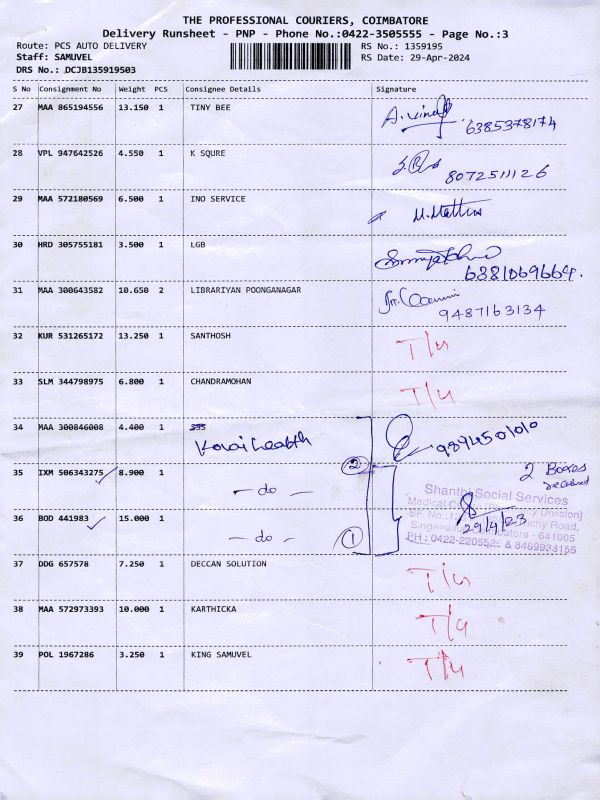 THE PROFESSIONAL COURIERS, COIMBATORE
Delivery Runsheet - PNP - Phone No.:0422-3505555 - Page No.:3
Route: PCS AUTO DELIVERY RS No.: 1359195
Staff: SAMUVEL RS Date: 29-Apr-2024
DRS No.: DCJB135919503
S No Consignment No Weight PCS Consignee Details Signature
27 MAA 865194556 13.150 1 TINY BEE
6385378174
28 VPL 947642526 4.550 1 K SQURE
8072511126
29 MAA 572180569 6.500 1 INO SERVICE
30 HRD 305755181 3.500 1 LGB
6381069664.
31 MAA 300643582 10.650 2 LIBRARIYAN POONGANAGAR
9487163134
32 KUR 531265172 13.250 1 SANTHOSH
33 SLM 344798975 6.800 1 CHANDRAMOHAN
34 MAA 300846008 4.400 1
Kovai health
9894501010
35 IXM 506343275 8.900 1
- do -
2
2 Boxes
received
Shanthi Social Services
36 BOD 441983 15.000 1
- do -
1
29/4/23
PH : 0422-2205525 & 8469933155
37 DDG 657578 7.250 1 DECCAN SOLUTION
38 MAA 572973393 10.000 1 KARTHICKA
39 POL 1967286 3.250 1 KING SAMUVEL